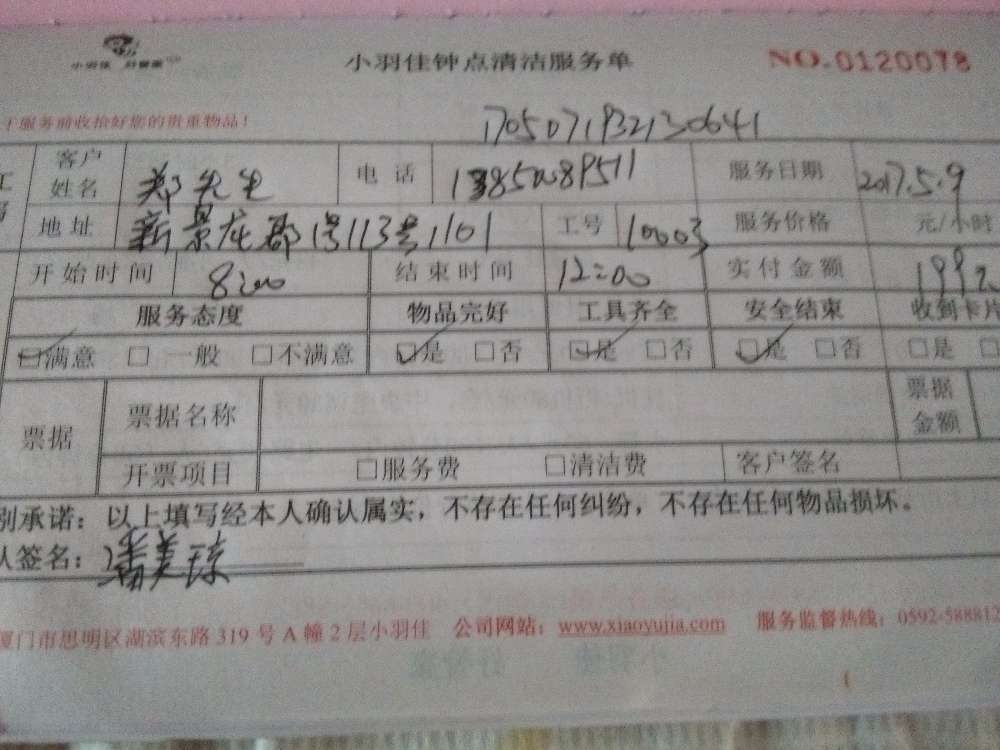 小羽佳 好管家 小羽佳钟点清洁服务单 NO.0120078
于服务前收拾好您的贵重物品!
1705071932130641
客户姓名 郑先生 电话 服务日期 2017.5.9
地址 新景龙郡1号113号1101 工号 10003 服务价格 元/小时
开始时间 8:00 结束时间 12:00 实付金额 199元
服务态度 物品完好 工具齐全 安全结束 收到卡片
☑满意 □一般 □不满意 ☑是 □否 ☑是 □否 ☑是 □否 □是 □
票据 票据名称 票据金额
开票项目 □服务费 □清洁费 客户签名
别承诺:以上填写经本人确认属实,不存在任何纠纷,不存在任何物品损坏。
人签名:潘美琼
厦门市思明区湖滨东路319号A幢2层小羽佳 公司网站:www.xiaoyujia.com 服务监督热线:0592-588812